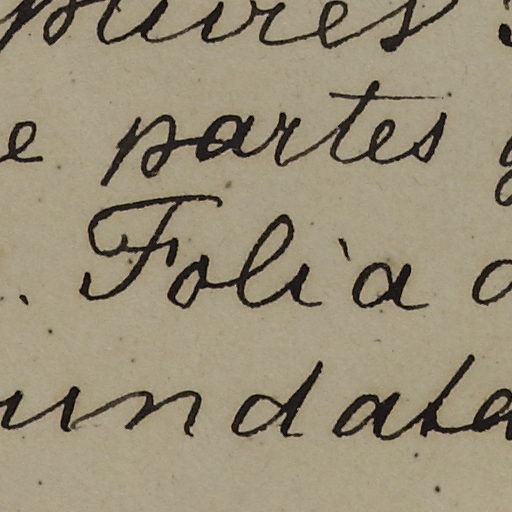 plures
e partes
. Folia
undata